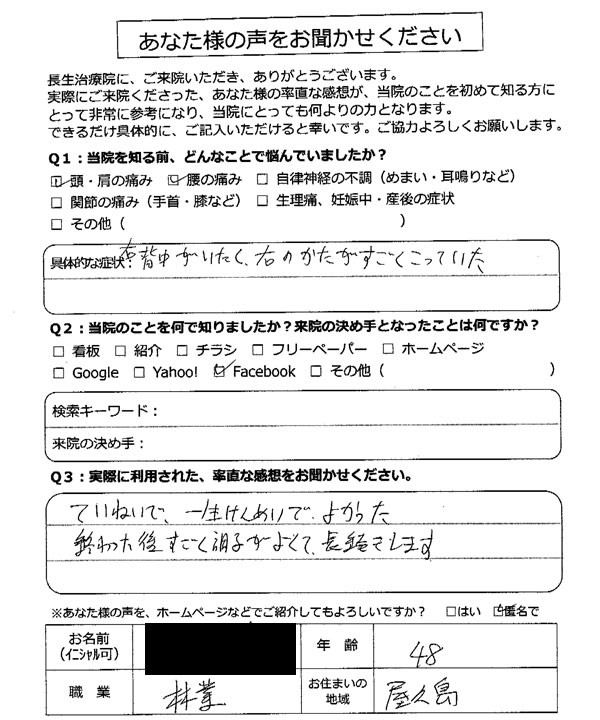 あなた様の声をお聞かせください
長生治療院に、ご来院いただき、ありがとうございます。
実際にご来院くださった、あなた様の率直な感想が、当院のことを初めて知る方に
とって非常に参考になり、当院にとっても何よりの力となります。
できるだけ具体的に、ご記入いただけると幸いです。ご協力よろしくお願いします。
Q1：当院を知る前、どんなことで悩んでいましたか？
☑ 頭・肩の痛み ☑ 腰の痛み □ 自律神経の不調（めまい・耳鳴りなど）
□ 関節の痛み（手首・膝など） □ 生理痛、妊娠中・産後の症状
□ その他（ ）
具体的な症状：右背中がいたく、右のかたがすごくこっていた
Q2：当院のことを何で知りましたか？来院の決め手となったことは何ですか？
□ 看板 □ 紹介 □ チラシ □ フリーペーパー □ ホームページ
□ Google □ Yahoo! ☑ Facebook □ その他（ ）
検索キーワード：
来院の決め手：
Q3：実際に利用された、率直な感想をお聞かせください。
ていねいで、一生けんめいで、よかった
終わった後すごく調子がよくて、長続きします
※あなた様の声を、ホームページなどでご紹介してもよろしいですか？ □はい ☑匿名で
お名前
（イニシャル可）
年 齢 48
職 業 林業
お住まいの
地域 屋久島